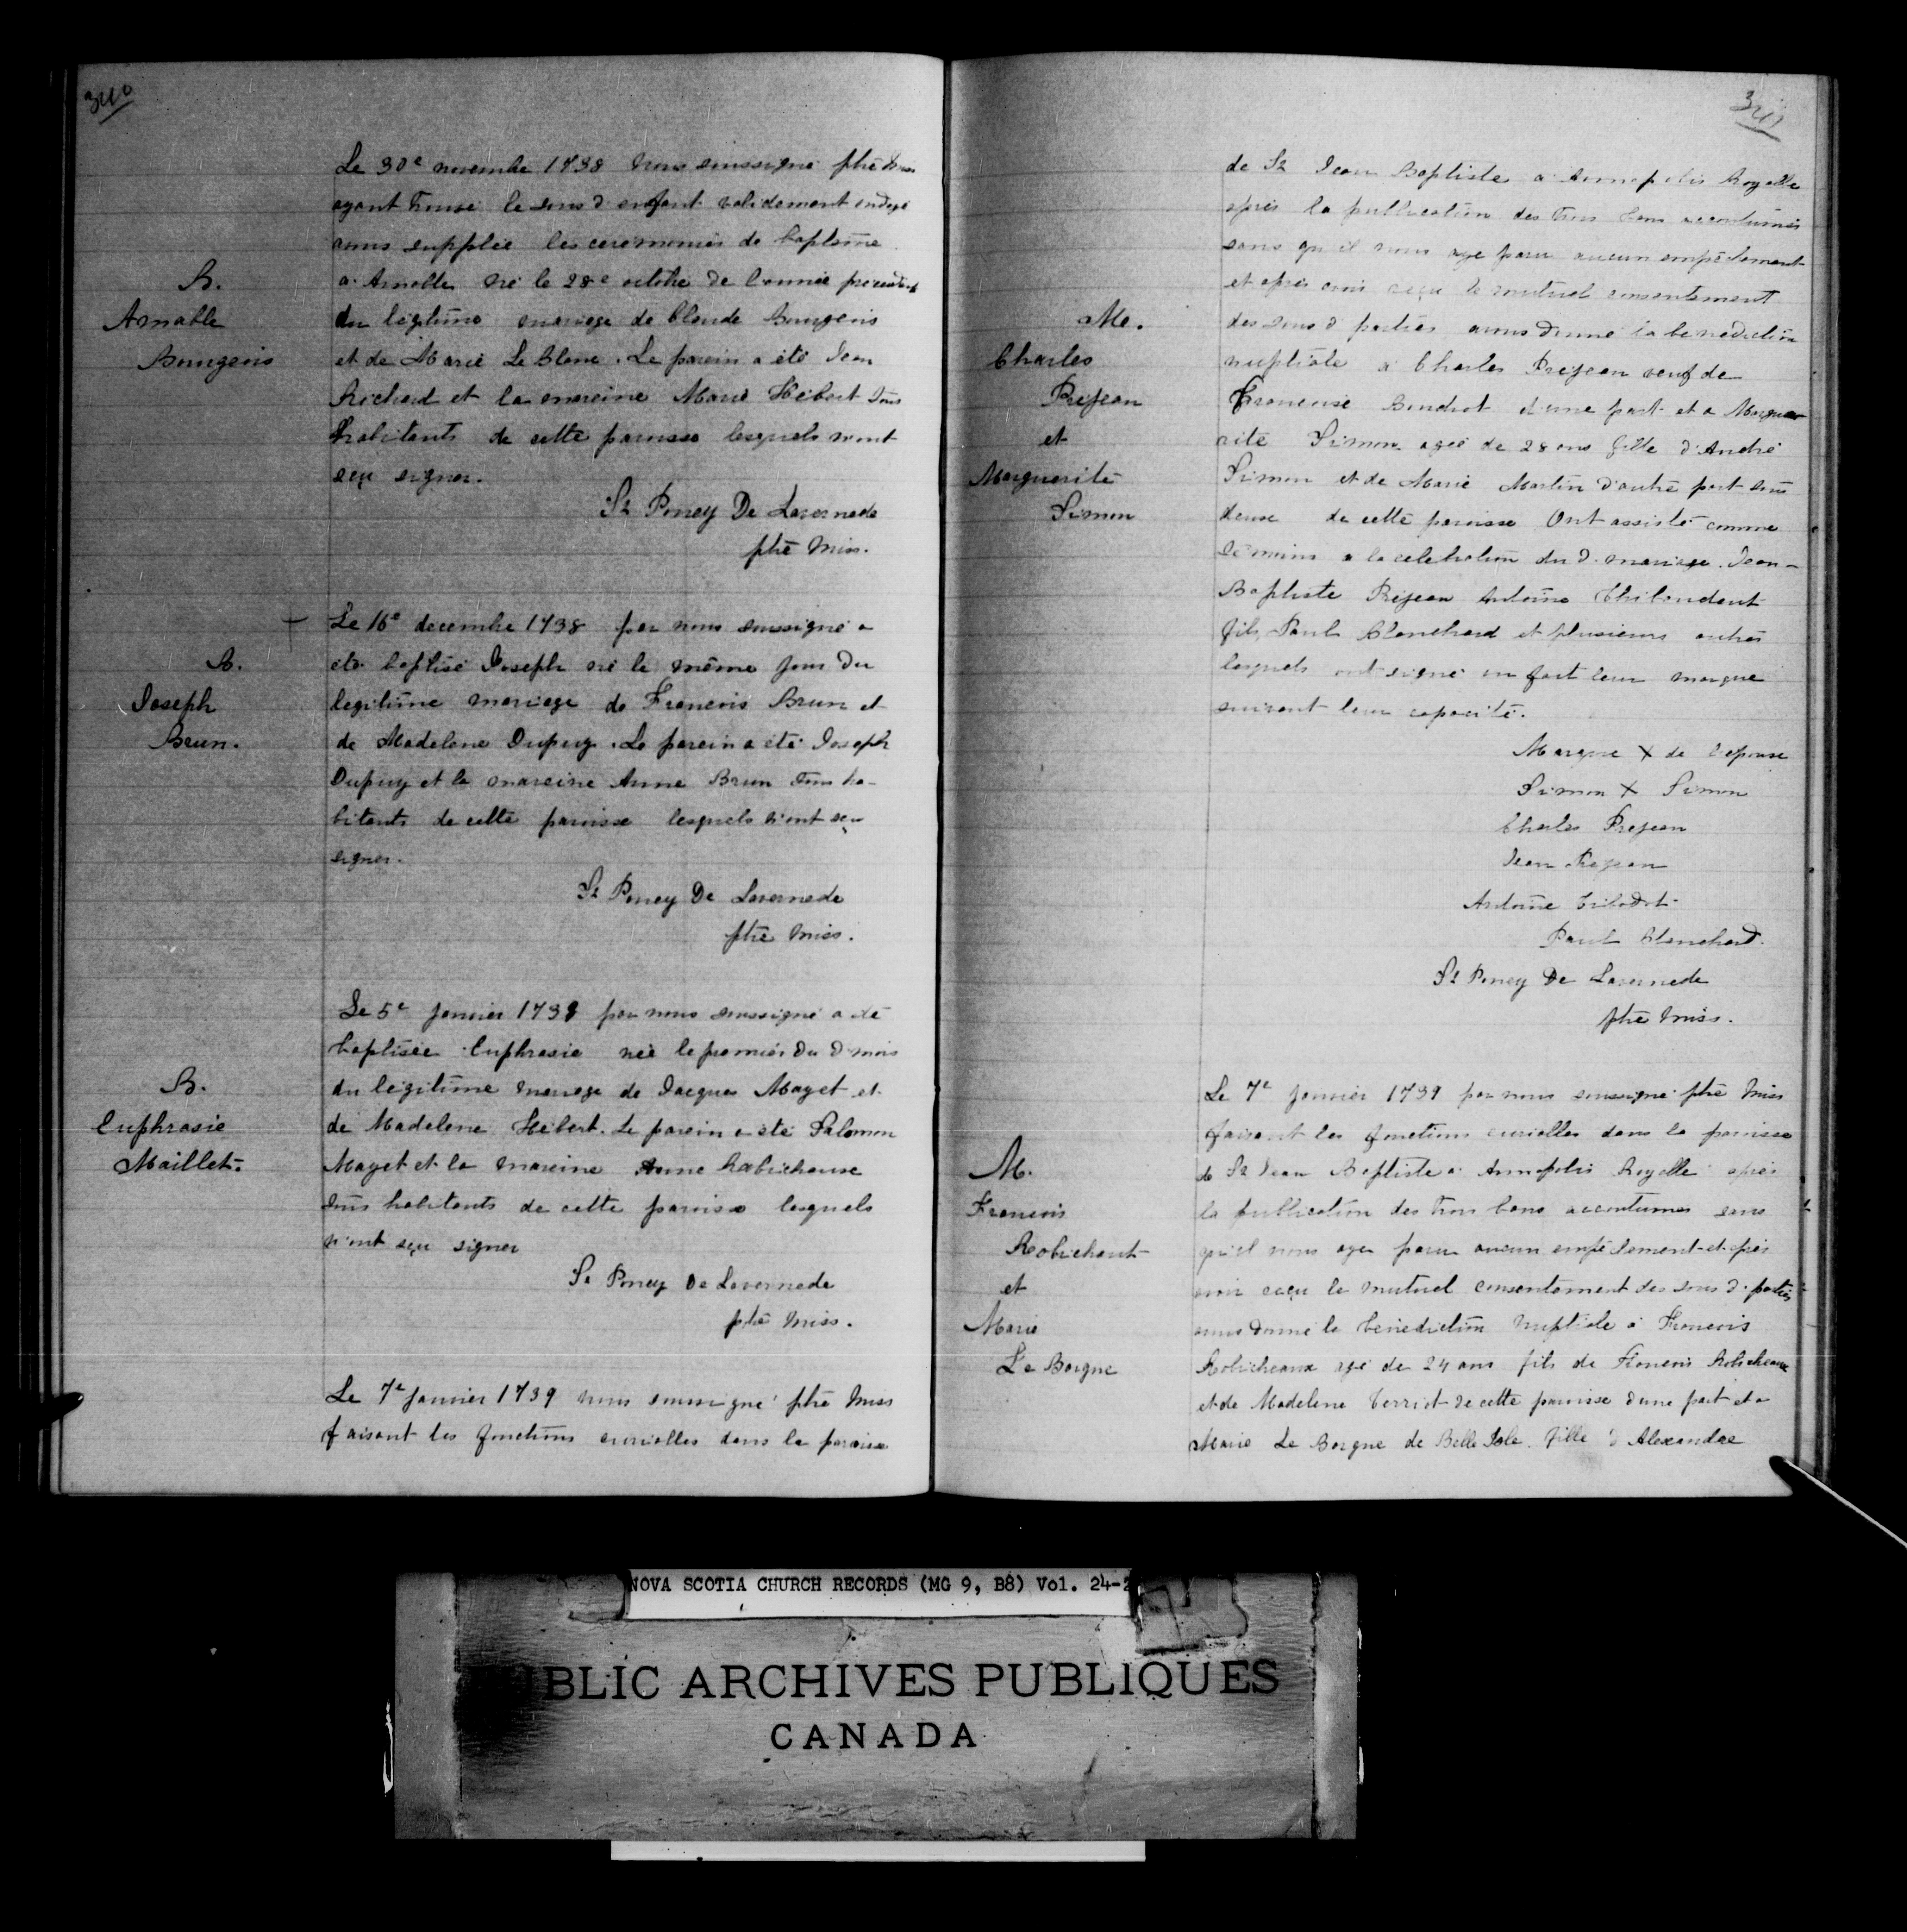 340
Le 30e novembre 1738 nous soussigné ptre miss
ayant trouvé le sous d. enfant validement ondoyé
avons supplée les ceremonies de baptême
B.
Amable
Bourgeois
a Amable né le 28e octobre de l'année précédente
du légitime mariage de Claude Bourgeois
et de Marie Le Blanc. Le parein a été Jean
Richard et la mareine Marie Hébert tous
habitants de cette paroisse lesquels n'ont
sçu signer.
St Poncy De Lavernede
ptre miss.
B.
Joseph
Brun.
Le 16e decembre 1738 par nous soussigné a
été baptisé Joseph né le même jour du
legitime mariage de Francois Brun et
de Madelene Dupuy. Le parein a été Joseph
Dupuy et la mareine Anne Brun tous ha-
bitants de cette paroisse lesquels n'ont sçu
signer.
St Poncy De Lavernede
ptre miss.
B.
Euphrasie
Maillet.
Le 5e janvier 1739 par nous soussigné a été
baptisée Euphrasie née le premier du d. mois
du légitime mariage de Jacques Mayet et
de Madelene Hébert. Le parein a été Salomon
Mayet et la mareine Anne Rabicheause
tous habitants de cette paroisse lesquels
n'ont sçu signer
St Poncy De Lavernede
ptre miss.
Le 7e janvier 1739 nous soussigné ptre miss
faisant les fonctions curialles dans la paroisse
341
de St Jean Baptiste a Annapolis Royalle
après la publication des trois bans accoutumés
sans qu'il nous aye paru aucun empêchement
et après avoir reçu le mutuel consentement
Me.
Charles
Prejean
et
Marguerite
Simon
des sous d. parties avons donné la bénédiction
nuptiale a Charles Prejean veuf de
Francoise Boudrot d'une part et a Margue
rite Simon agée de 28 ans fille d'André
Simon et de Marie Martin d'autre part tous
deux de cette paroisse Ont assisté comme
témoins a la celebration du d. mariage Jean-
Baptiste Prejean Antoine Thibaudaut
fils, Paul Blanchard et plusieurs autres
lesquels ont signé ou fait leur marque
suivant leur capacité.
Marque X de l'epouse
Simon X Simon
Charles Prejean
Jean Prejean
Antoine Tibodot
Paul Blanchard.
St Poncy De Lavernede
ptre miss.
M.
Francois
Robichaut
et
Marie
Le Borgne
Le 7e janvier 1739 par nous soussigné ptre miss
faisant les fonctions curialles dans la paroisse
de St Jean Baptiste a Annapolis Royalle après
la publication des trois bans accoutumés sans
qu'il nous aye paru aucun empêchement et après
avoir reçu le mutuel consentement des sous d. parties
avons donné la bénédiction nuptiale a Francois
Robicheaux agé de 24 ans fils de Francois Robicheaux
et de Madelene Terriot de cette paroisse d'une part et a
Marie Le Borgne de Belle Isle fille d'Alexandre
NOVA SCOTIA CHURCH RECORDS (MG 9, B8) Vol. 24-2
BLIC ARCHIVES PUBLIQUES
CANADA